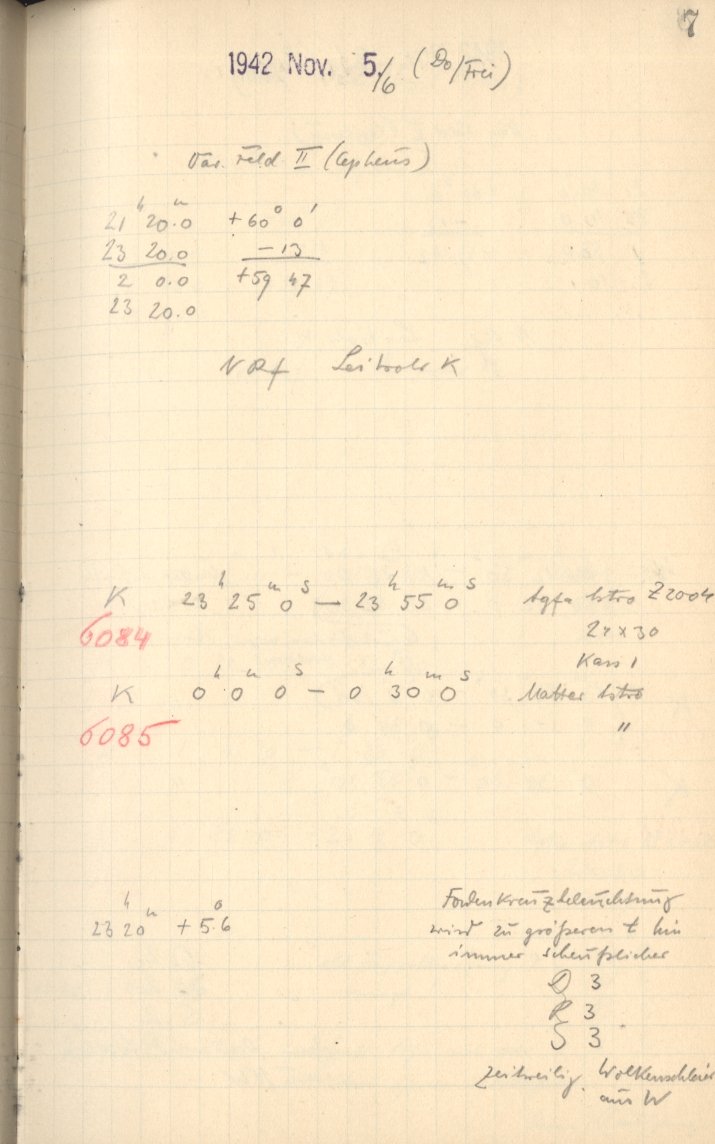 7
1942 Nov. 5./6 (Do/Frei)
Var. Feld II (Cepheus)
21 h 20.0 m +60° 0'
23 20.0 -13
2 0.0 +59 47
23 20.0
K
K 23 h 25 m 0 s — 23 h 55 m 0 s Agfa Astro Z 2004
6084
24 x 30
Kass 1
K 0 h 0 m 0 s — 0 h 30 m 0 s Matter Astro
6085 "
Fadenkreuzbeleuchtung
23 h 20 m +5.6° wird zu größeren t hin
immer scheußlicher
D 3
R 3
S 3
zeitweilig Wolkenschleier
aus W